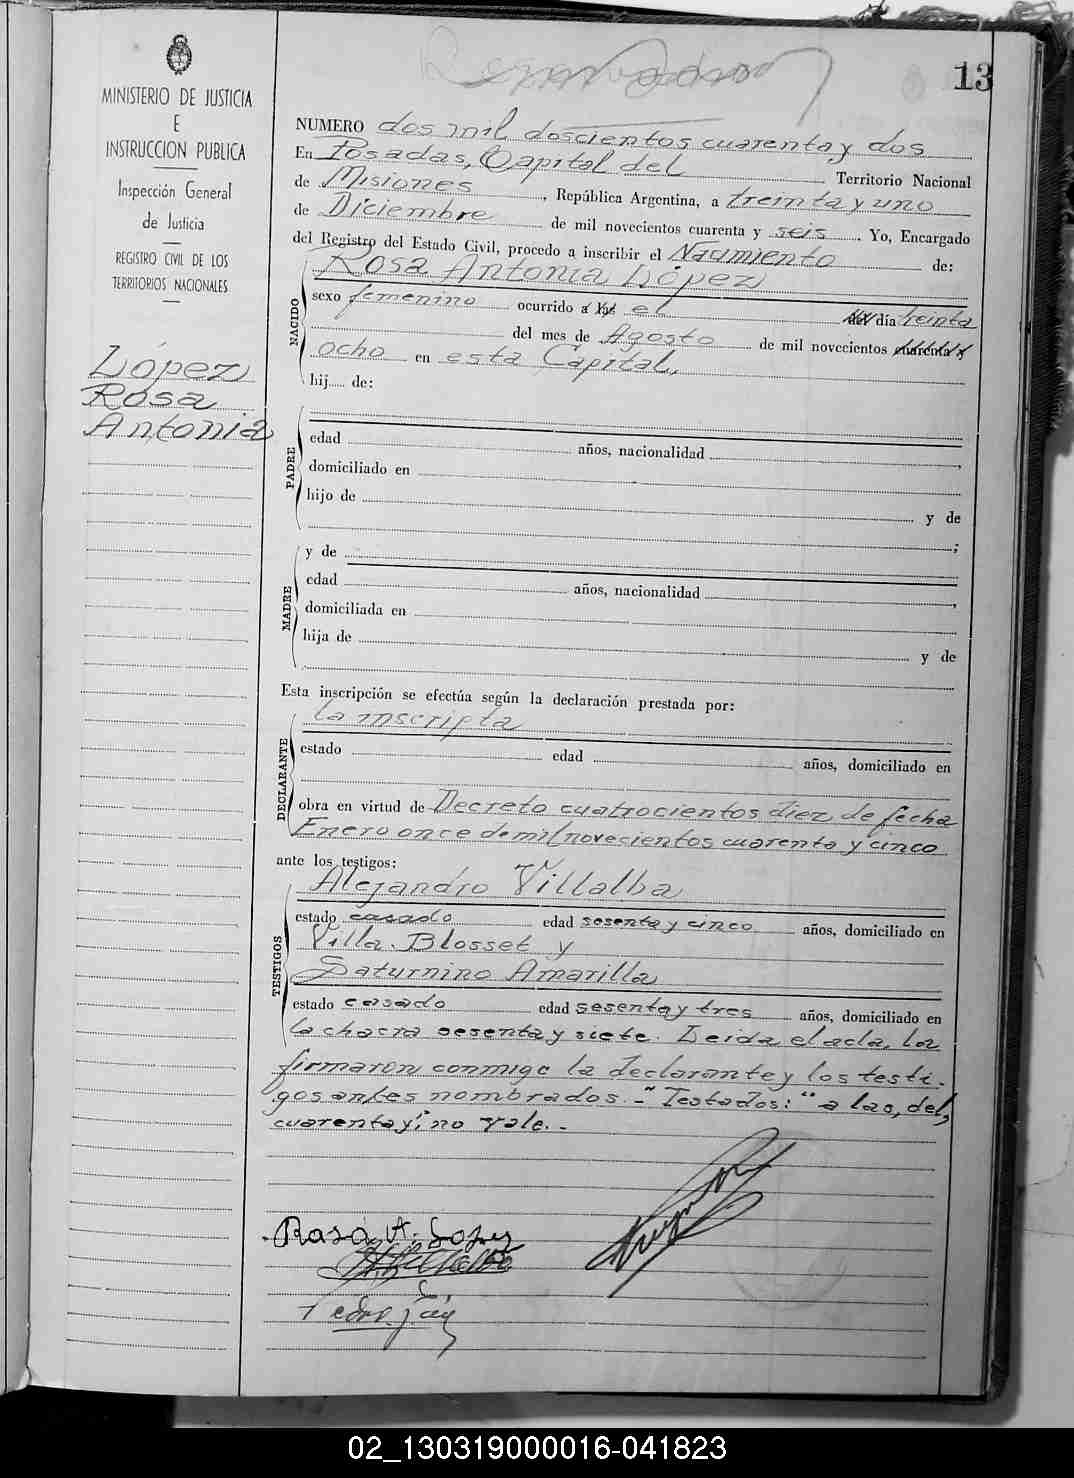 13
MINISTERIO DE JUSTICIA
E
INSTRUCCION PUBLICA
Inspección General
de Justicia
REGISTRO CIVIL DE LOS
TERRITORIOS NACIONALES
López
Rosa
Antonia
NUMERO dos mil doscientos cuarenta y dos
En Posadas, Capital del Territorio Nacional
de Misiones, República Argentina, a treinta y uno
de Diciembre de mil novecientos cuarenta y seis. Yo, Encargado
del Registro del Estado Civil, procedo a inscribir el Nacimiento de:
NACIDO
Rosa Antonia López
sexo femenino ocurrido a las el del día treinta
del mes de Agosto de mil novecientos cuarenta y
ocho en esta Capital.
hij de:
PADRE
edad años, nacionalidad ,
domiciliado en
hijo de y de
;
MADRE
y de
edad años, nacionalidad ,
domiciliada en
hija de y de
Esta inscripción se efectúa según la declaración prestada por:
DECLARANTE
la inscripta
estado edad años, domiciliado en
obra en virtud de Decreto cuatrocientos diez de fecha
Enero once de mil novecientos cuarenta y cinco
ante los testigos:
TESTIGOS
Alejandro Villalba
estado casado edad sesenta y cinco años, domiciliado en
Villa Blosset y
Saturnino Amarilla
estado casado edad sesenta y tres años, domiciliado en
la chacra sesenta y siete. Leida el acta, la
firmaron conmigo la declarante y los testi-
gos antes nombrados.- "Testados:" a las, del,
cuarenta y; no vale.-
Rosa A. López
02_130319000016-041823